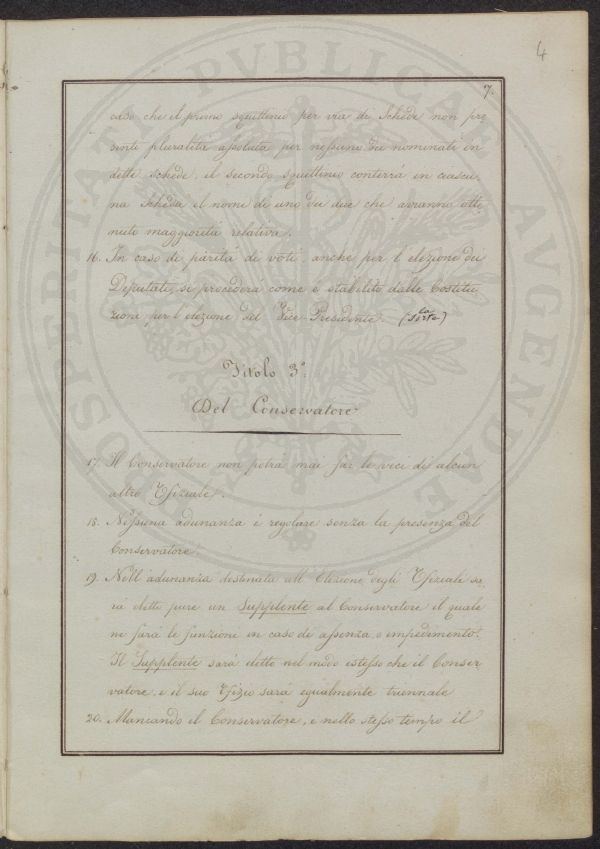 4
7.
caso che il primo squittinio per via di Schede non pre
senti pluralità assoluta per nessuno dei nominati in
dette schede, il secondo squittinio conterrà in ciascu,
na Scheda il nome di uno dei due che avranno otte
nuto maggiorità relativa.
16. In caso di parità di voti, anche per l'elezione dei
Deputati, si procederà come è stabilito dalle Costitu
zioni per l'elezione del Vice-Presidente.
Titolo 3°.
Del Conservatore
17. Il Conservatore non potrà mai far le veci di alcun
altro Ufiziale.
18. Nessuna adunanza è regolare senza la presenza del
Conservatore.
19. Nell'adunanza destinata all'Elezione degli Ufiziali sa,
rà eletto pure un Supplente al Conservatore il quale
ne farà le funzioni in caso di assenza, o impedimento.
Il Supplente sarà eletto nel modo istesso che il Conser
vatore, e il suo Ufizio sarà egualmente triennale
20. Mancando il Conservatore, e nello stesso tempo il
PROSPERITATI PVBLICAE AVGENDAE